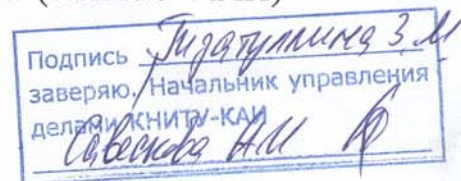 Подпись Гизатуллина З.М
заверяю. Начальник управления
делами КНИТУ-КАИ